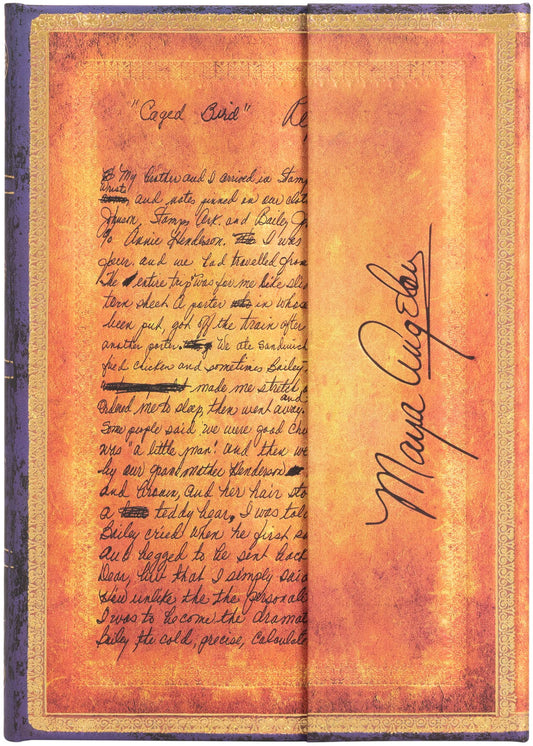 "Caged Bird"
My brother and I arrived in Stam
wrists, and notes pinned on our clot
Johnson, Stamps, Ark. and Bailey Jo
c/o Annie Henderson. I was
four, and we had travelled from
The entire trip was for me like sle
tern sheet. A porter in whose
been put, got off the train after
another porter. We ate sandwich
fried chicken and sometimes Bailey
made me stretch o
and
ordered me to sleep, then went away.
Some people said we were good chi
was "a little man". and then we
by our grandmother Henderson
and brown, and her hair sto
a teddy bear, I was tole
Bailey cried when he first sa
and begged to be sent back
Dear, but that I simply said
unlike the the personali
I was to become the dramat
Bailey the cold, precise, calculate
Maya Angelou